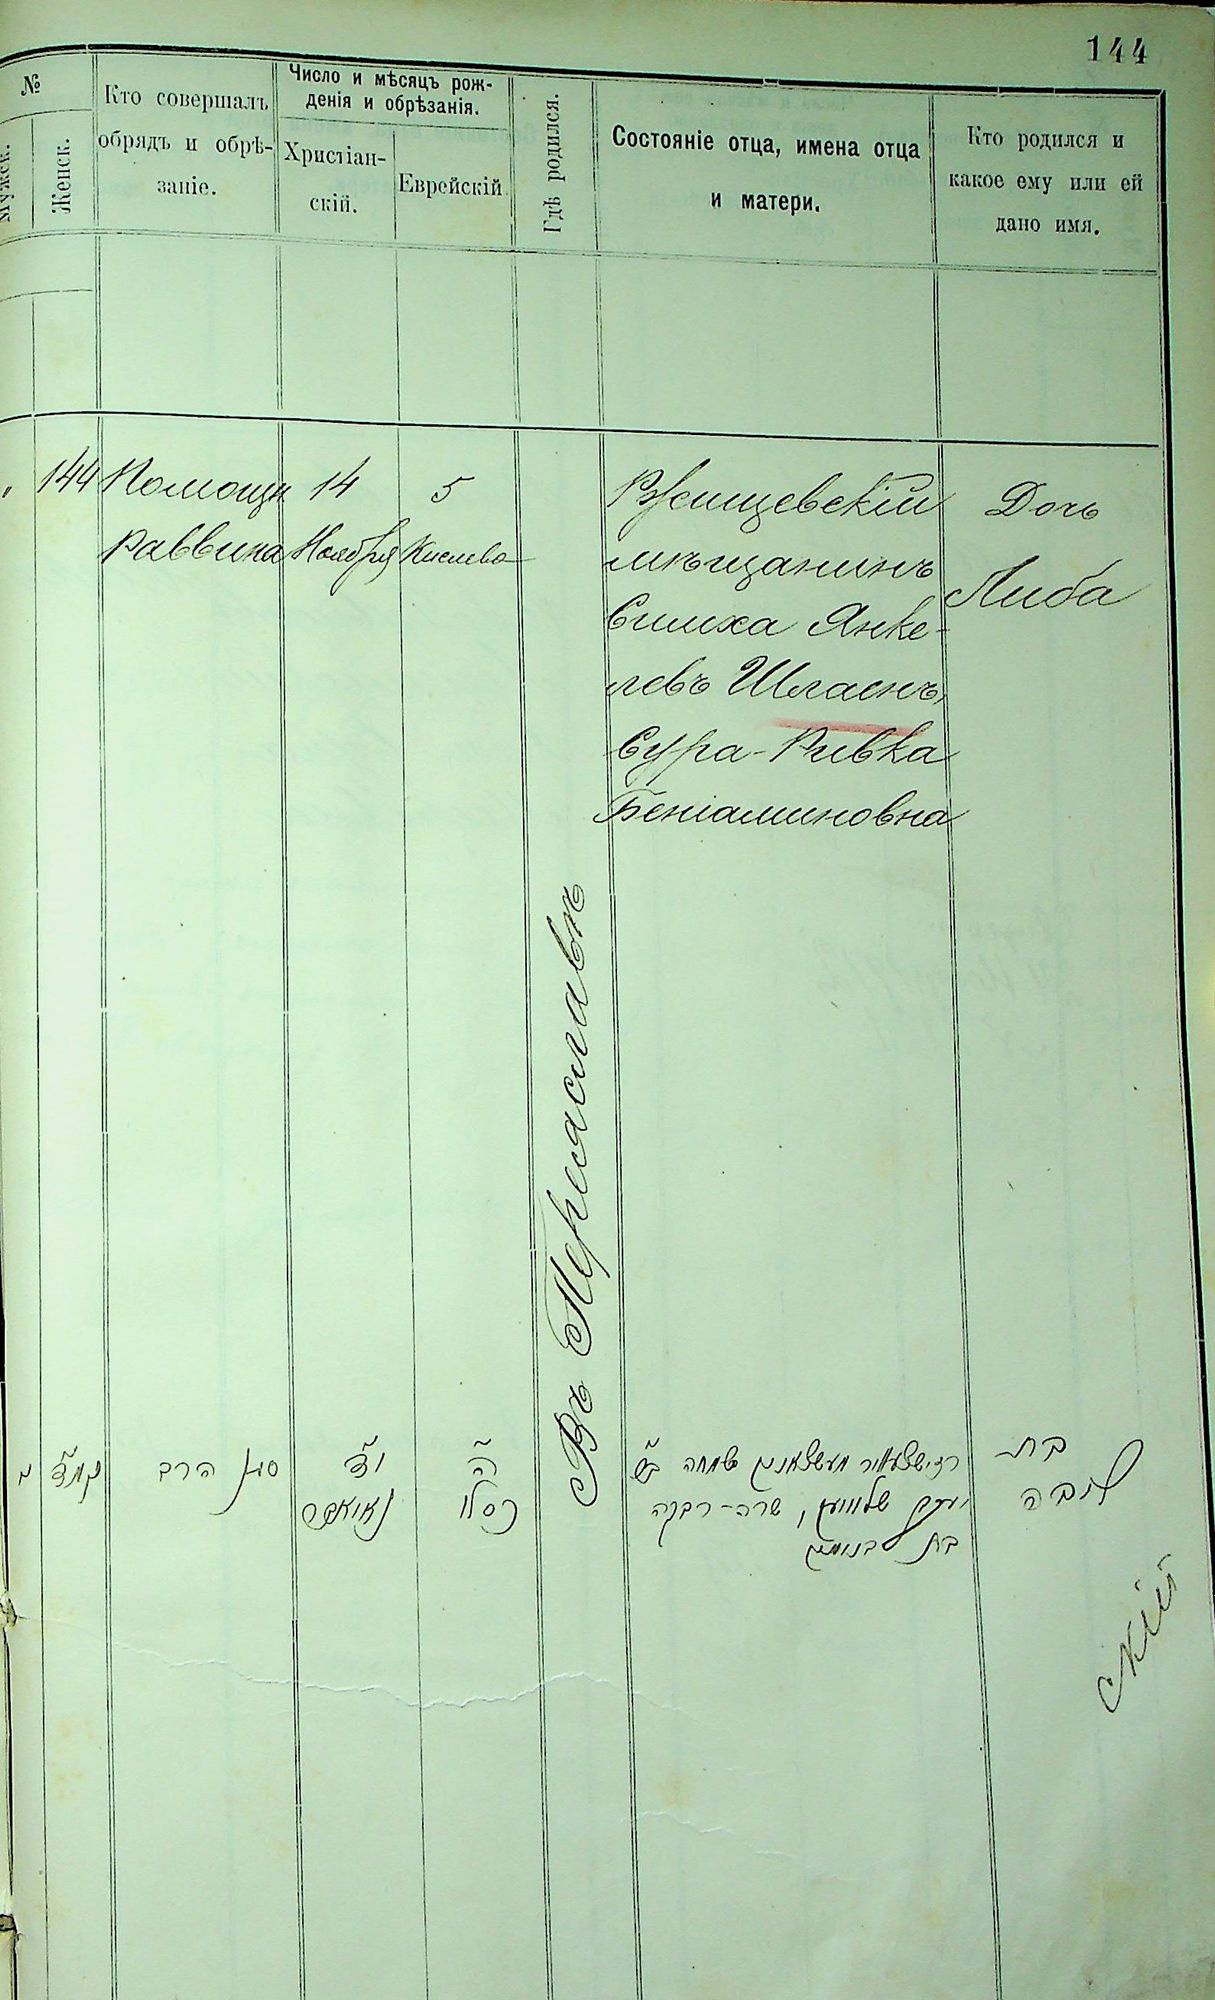 144
№
Мужск.
Женск.
Кто совершалъ
обрядъ и обрѣ-
заніе.
Число и мѣсяцъ рож-
денія и обрѣзанія.
Христіан-
скій.
Еврейскій
Гдѣ родился.
Состояніе отца, имена отца
и матери.
Кто родился и
какое ему или ей
дано имя.
"
144
Помощн
раввина
14
Ноября
5
Кислева
Въ Переяславѣ
Ржищевскій
мѣщанинъ
Симха Янке-
левъ Шлаенъ,
Сура-Ривка
Беніаминовна
Дочь
Либа
קמ״ד
סגן הרב
י״ד
נאיאבר
ה׳
כסלו
שמחה
יעקב, שרה-רבקה
בת בנימין
בת
ליבה
скій